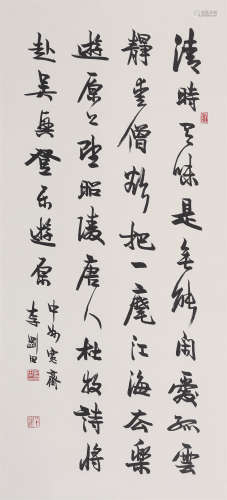 清時有味是無能閑愛孤雲
靜愛僧欲把一麾江海去樂
遊原上望昭陵唐人杜牧詩將
赴吴興登乐遊原
中州寒齋
李剛田